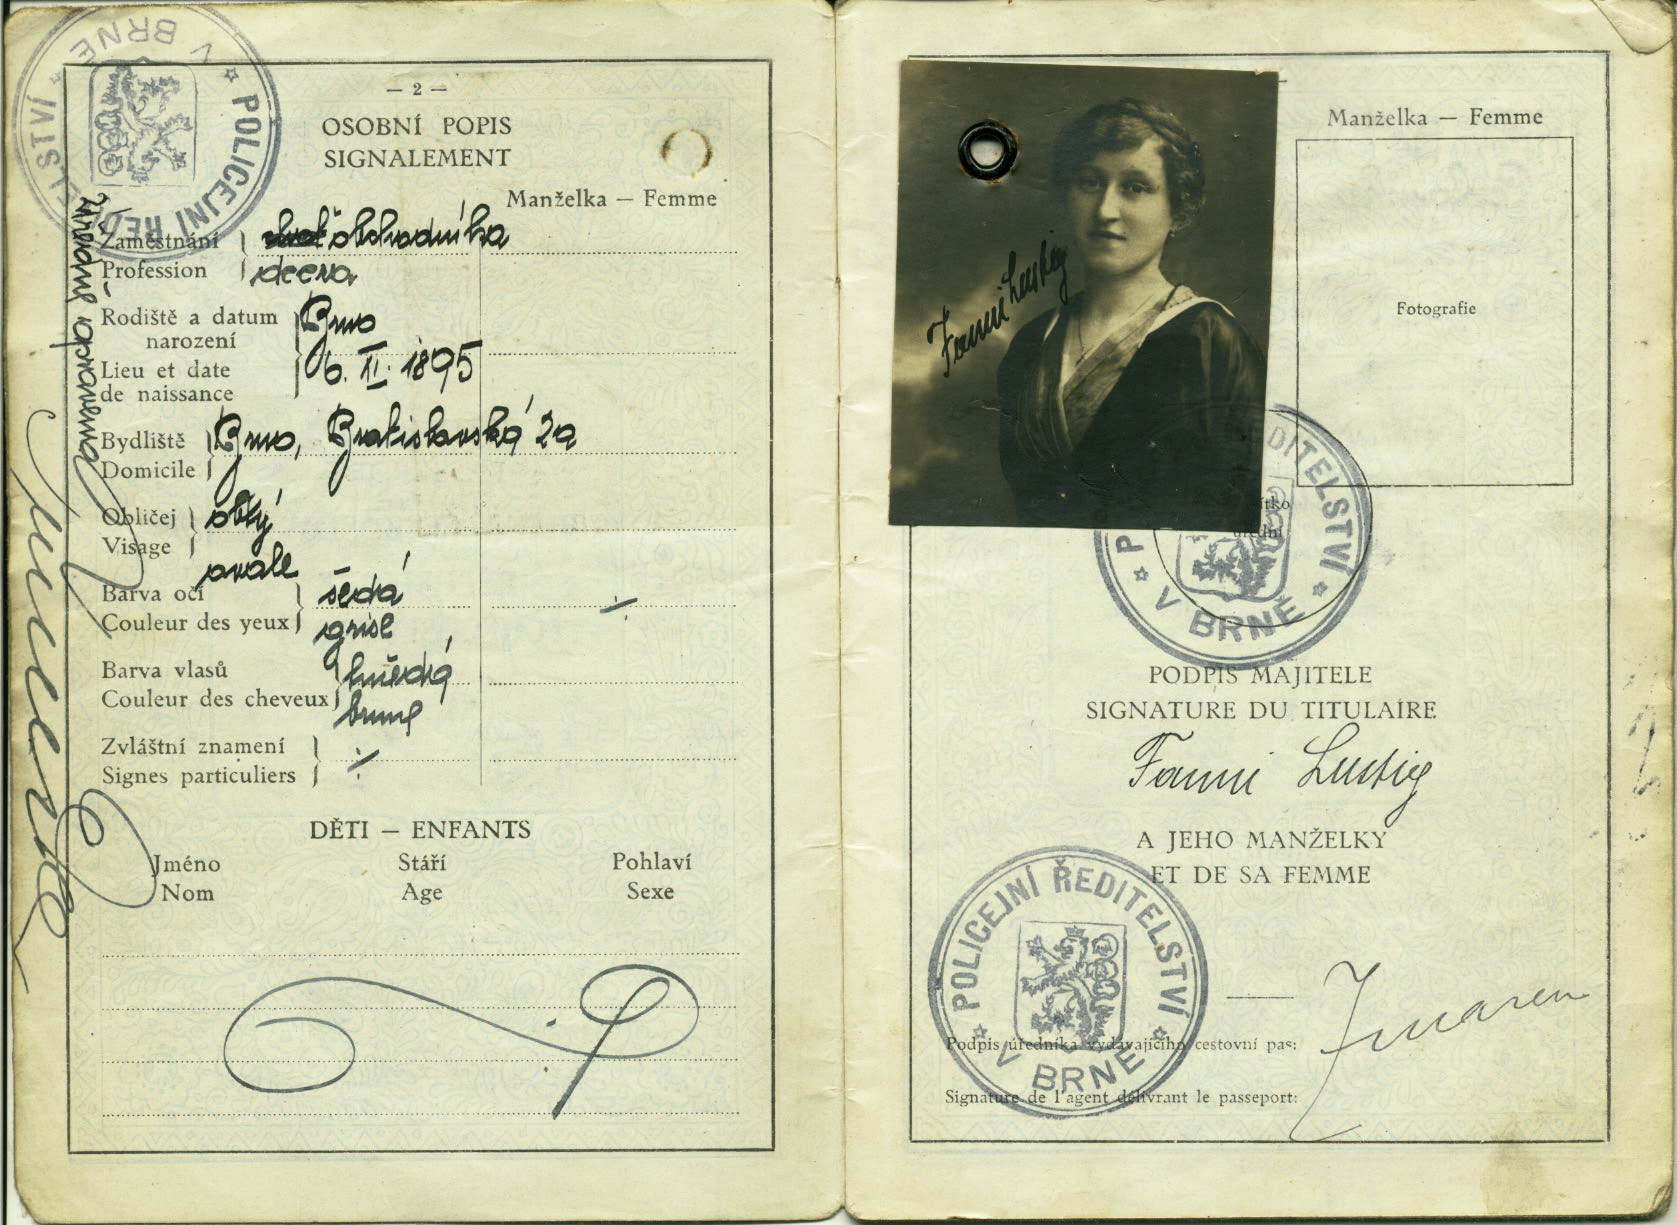 — 2 —
OSOBNÍ POPIS
SIGNALEMENT
Manželka — Femme
Zaměstnání
Profession
obchodníka
dcera
Rodiště a datum
narození
Lieu et date
de naissance
Brno
6. II. 1895
Bydliště
Domicile
Brno, Bratislavská 2a
Obličej
Visage
oblý
ovale
Barva očí
Couleur des yeux
šedá
grise
Barva vlasů
Couleur des cheveux
hnědá
brune
Zvláštní znamení
Signes particuliers
DĚTI — ENFANTS
Jméno Stáří Pohlaví
Nom Age Sexe
POLICEJNÍ ŘEDITELSTVÍ
V BRNĚ
úředně opraveno
Fanni Lustig
Manželka — Femme
Fotografie
úřední
POLICEJNÍ ŘEDITELSTVÍ
V BRNĚ
PODPIS MAJITELE
SIGNATURE DU TITULAIRE
Fanni Lustig
A JEHO MANŽELKY
ET DE SA FEMME
POLICEJNÍ ŘEDITELSTVÍ
V BRNĚ
Podpis úředníka vydávajícího cestovní pas:
Signature de l'agent délivrant le passeport: